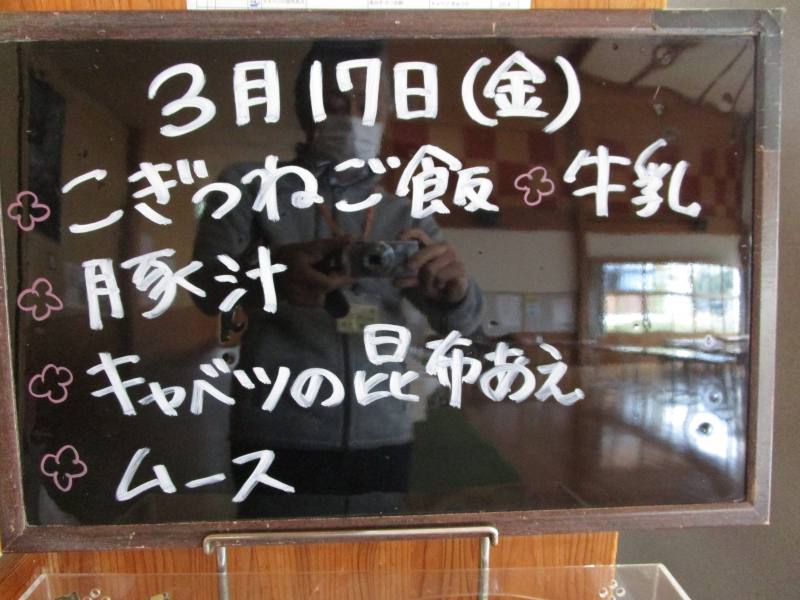 3月17日(金)
こぎつねご飯 牛乳
豚汁
キャベツの昆布あえ
ムース